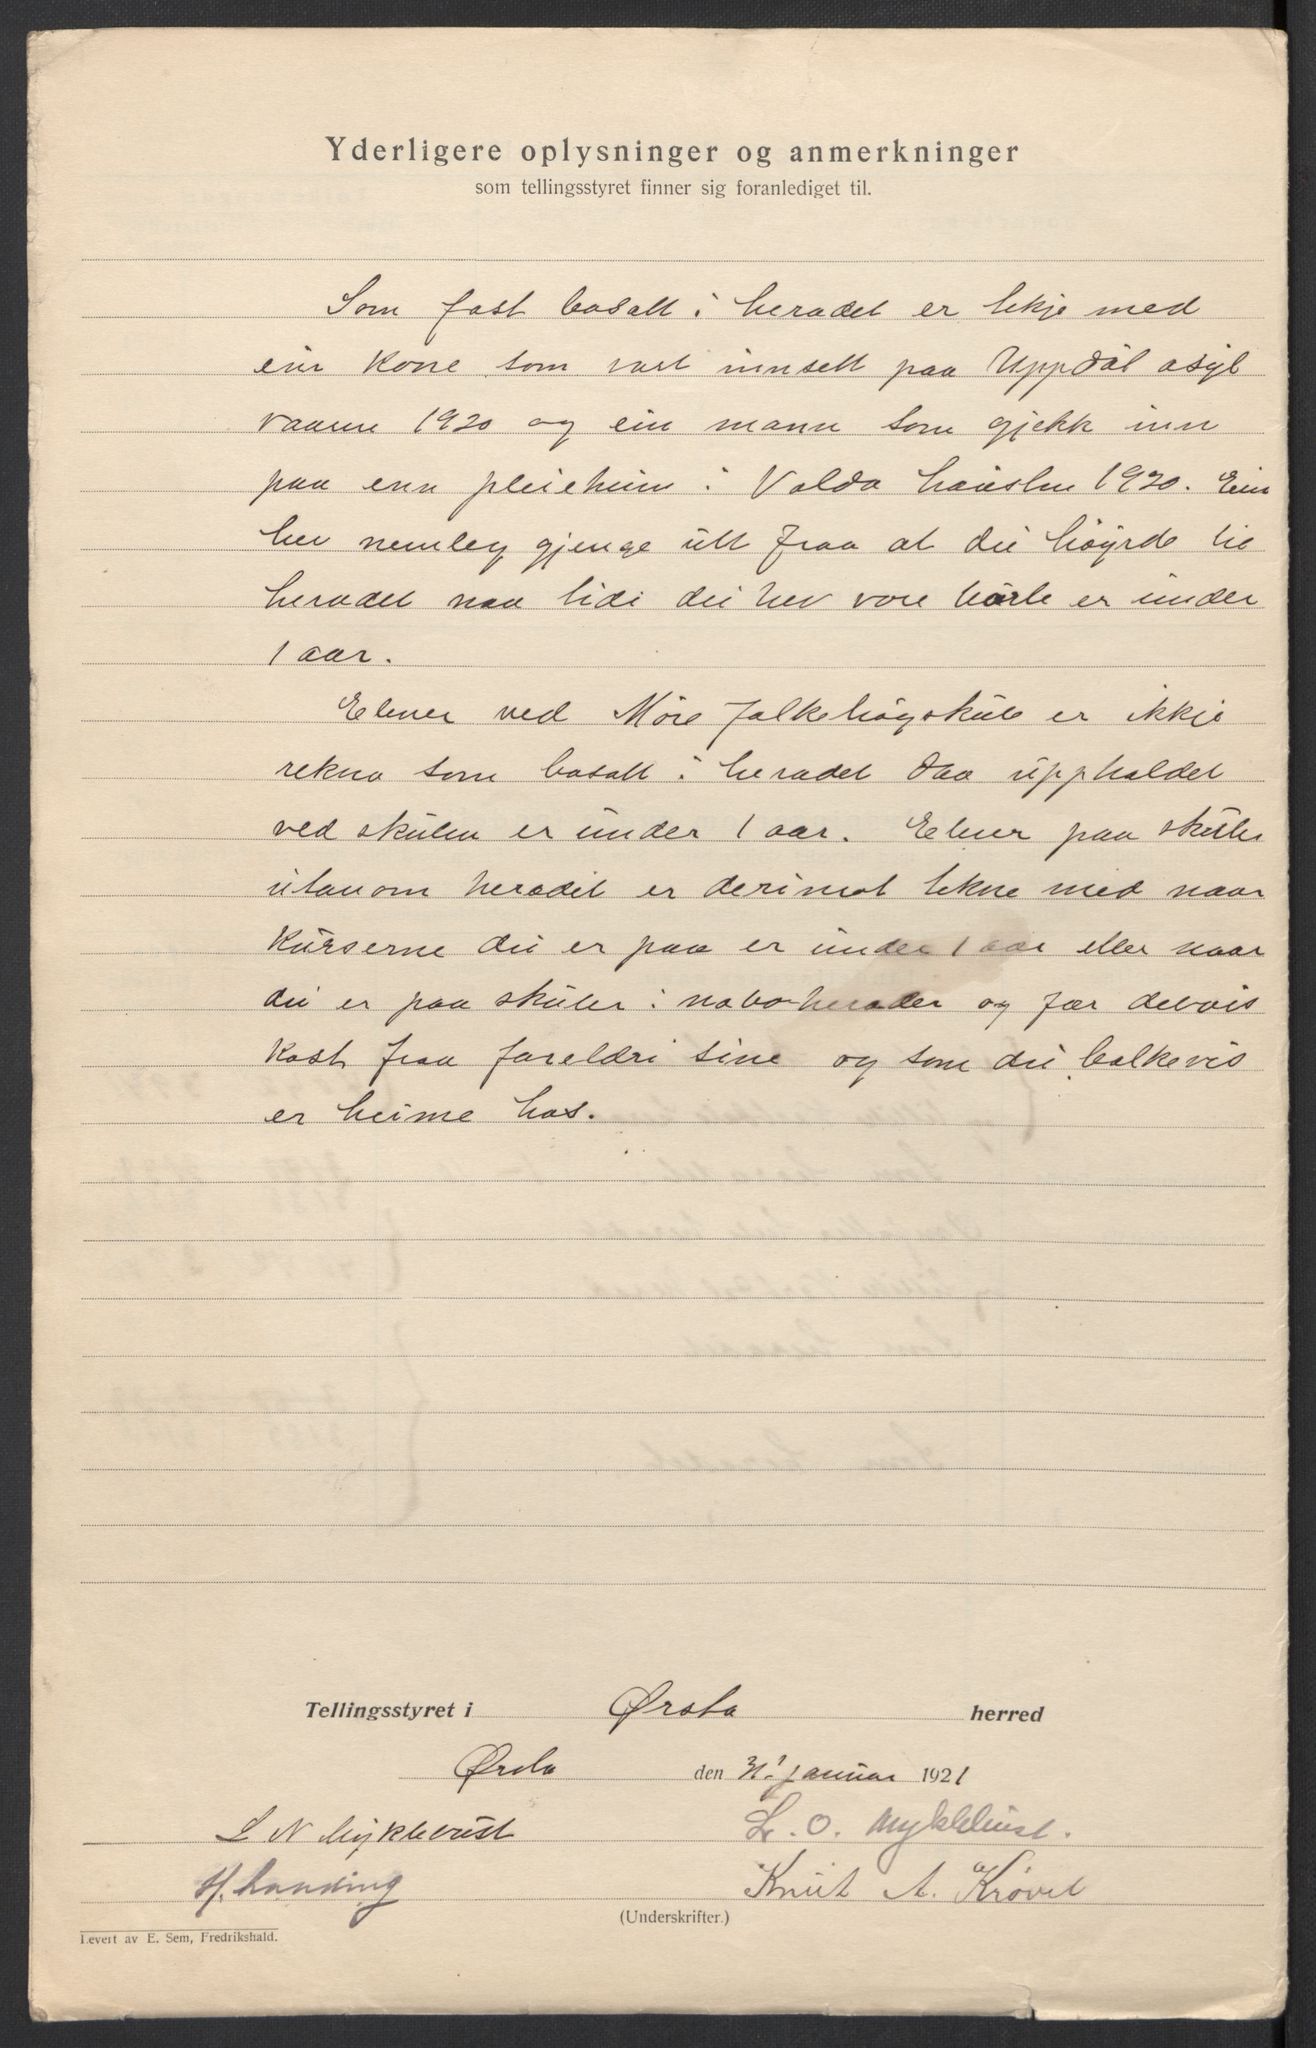 Yderligere oplysninger og anmerkninger
som tellingsstyret finner sig foranlediget til.
Som fast bosatt i heradet er tekje med
ein kone som vart innsett paa Uppdal asyl
vaaren 1920 og ein mann som gjekk inn
paa enn pleieheim i Volda hausten 1920. Ein
hev nemleg gjenge utt fraa at dei høyrde til
heradet naa tidi dei hev vore burte er under
1 aar.
Elever ved Møre folkehøgskule er ikkje
rekna som bosatt i heradet daa uppholdet
ved skulen er under 1 aar. Elever paa skuler
utanom heradet er derimot tekne med naar
kurserne dei er paa er under 1 aar eller naar
dei er paa skuler i naboherader og fær delvis
kost fraa foreldri sine og som dei bolkevis
er heime hos.
Tellingsstyret i Ørsta herred
Ørsta den 31. januar 1921
L N Myklebust L. O. Myklebust.
H. Landing Knut A. Krøvel
(Underskrifter.)
Levert av E. Sem, Fredrikshald.